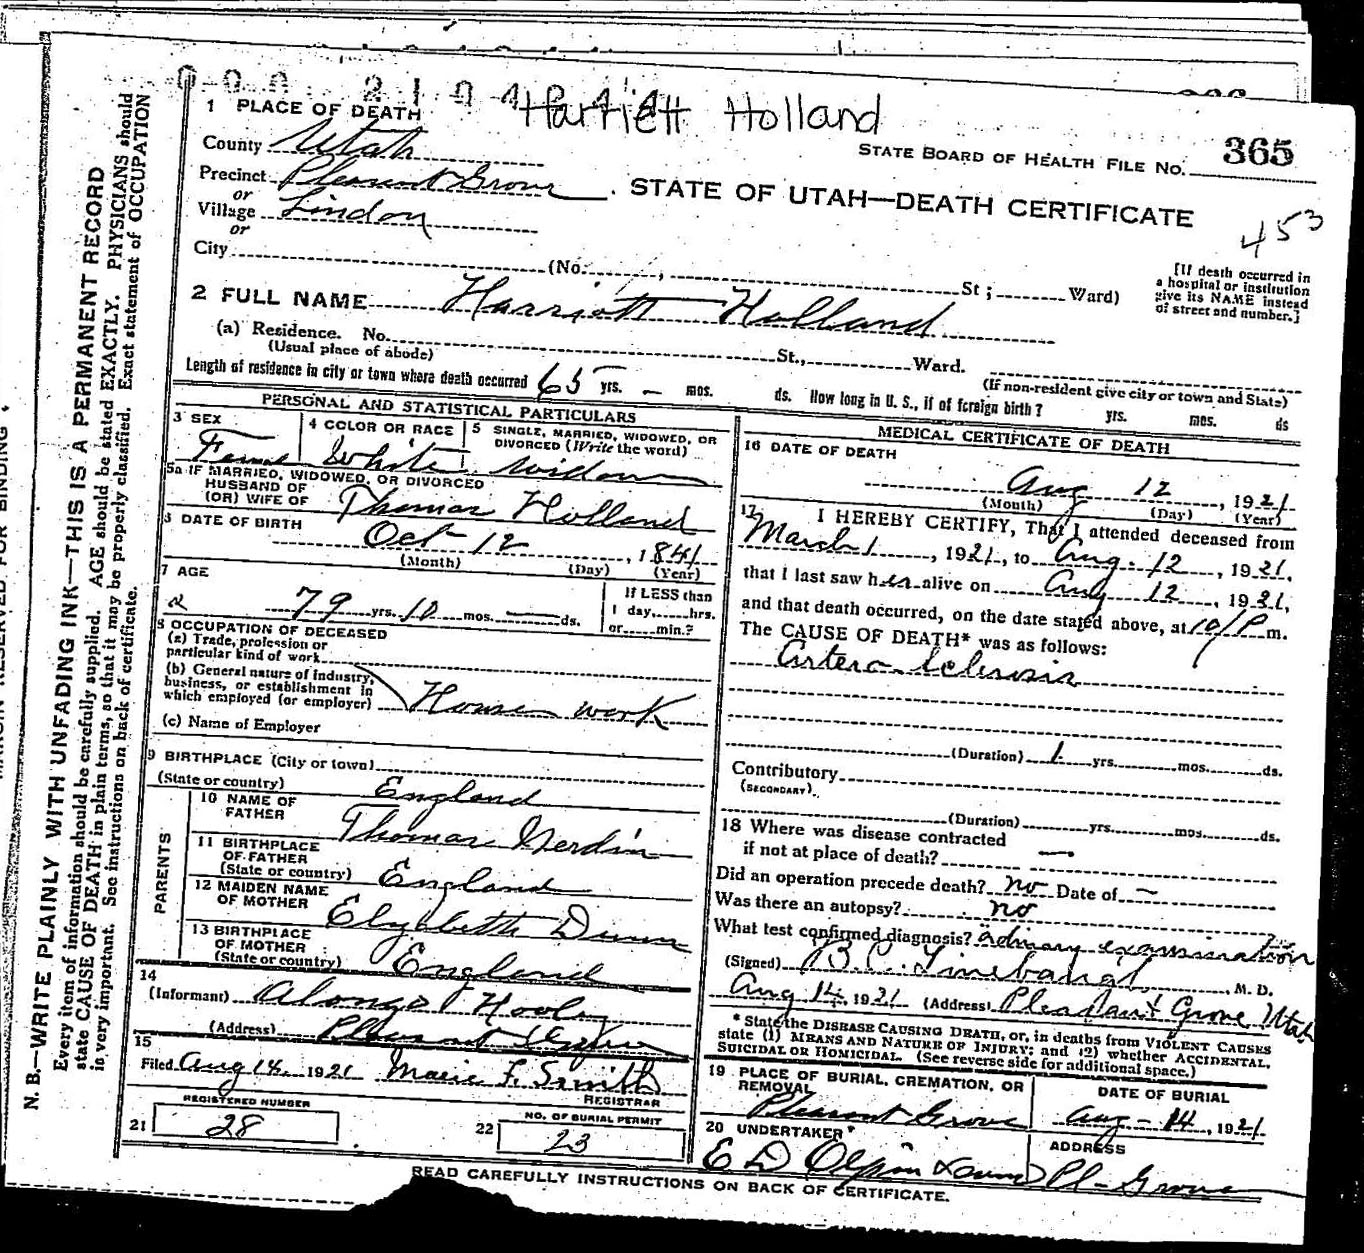 Harriett Holland
1 PLACE OF DEATH
County Utah
STATE BOARD OF HEALTH FILE No. 365
Precinct Pleasant Grove
or
STATE OF UTAH—DEATH CERTIFICATE
Village Lindon
or
453
City (No. , St ; Ward)
[If death occurred in
a hospital or institution
give its NAME instead
of street and number.]
2 FULL NAME Harriett Holland
(a) Residence. No. St., Ward.
(Usual place of abode)
(If non-resident give city or town and State)
Length of residence in city or town where death occurred 65 yrs. — mos. ds. How long in U. S., if of foreign birth? yrs. mos. ds
PERSONAL AND STATISTICAL PARTICULARS
3 SEX
Fem
4 COLOR OR RACE
White
5 SINGLE, MARRIED, WIDOWED, OR
DIVORCED (Write the word)
widow
5a IF MARRIED, WIDOWED, OR DIVORCED
HUSBAND OF
(OR) WIFE OF Thomas Holland
6 DATE OF BIRTH
Oct 12, 1841
(Month) (Day) (Year)
7 AGE
79 yrs. 10 mos. — ds.
If LESS than
1 day, hrs.
or min.?
8 OCCUPATION OF DECEASED
(a) Trade, profession or
particular kind of work
(b) General nature of Industry,
business, or establishment in
which employed (or employer) House work
(c) Name of Employer
9 BIRTHPLACE (City or town)
(State or country) England
PARENTS
10 NAME OF
FATHER Thomas
11 BIRTHPLACE
OF FATHER
(State or country) England
12 MAIDEN NAME
OF MOTHER Elizabeth Dunn
13 BIRTHPLACE
OF MOTHER
(State or country) England
14
(Informant) Alonzo
(Address) Pleasant Grove
15
Filed Aug 14 1921 Marie F. Smith
REGISTRAR
REGISTERED NUMBER
21 28
NO. OF BURIAL PERMIT
22 23
MEDICAL CERTIFICATE OF DEATH
16 DATE OF DEATH
Aug 12, 1921
(Month) (Day) (Year)
17 I HEREBY CERTIFY, That I attended deceased from
March 1, 1921, to Aug. 12, 1921,
that I last saw her alive on Aug 12, 1921,
and that death occurred, on the date stated above, at 10/P m.
The CAUSE OF DEATH* was as follows:
Artero Sclerosis
(Duration) 1 yrs. mos. ds.
Contributory
(SECONDARY)
(Duration) yrs. mos. ds.
18 Where was disease contracted
if not at place of death? —
Did an operation precede death? no Date of —
Was there an autopsy? no
What test confirmed diagnosis? ordinary examination
(Signed) B.C. Linebaugh, M. D.
Aug 14, 1921 (Address) Pleasant Grove Utah
* State the DISEASE CAUSING DEATH, or, in deaths from VIOLENT CAUSES
state (1) MEANS AND NATURE OF INJURY; and (2) whether ACCIDENTAL,
SUICIDAL OR HOMICIDAL. (See reverse side for additional space.)
19 PLACE OF BURIAL, CREMATION, OR
REMOVAL
Pleasant Grove
DATE OF BURIAL
Aug - 14, 1921
20 UNDERTAKER
E D Olpin
ADDRESS
Pl- Grove
READ CAREFULLY INSTRUCTIONS ON BACK OF CERTIFICATE.
N. B.—WRITE PLAINLY WITH UNFADING INK—THIS IS A PERMANENT RECORD
Every item of information should be carefully supplied. AGE should be stated EXACTLY. PHYSICIANS should
state CAUSE OF DEATH in plain terms, so that it may be properly classified. Exact statement of OCCUPATION
is very important. See instructions on back of certificate.